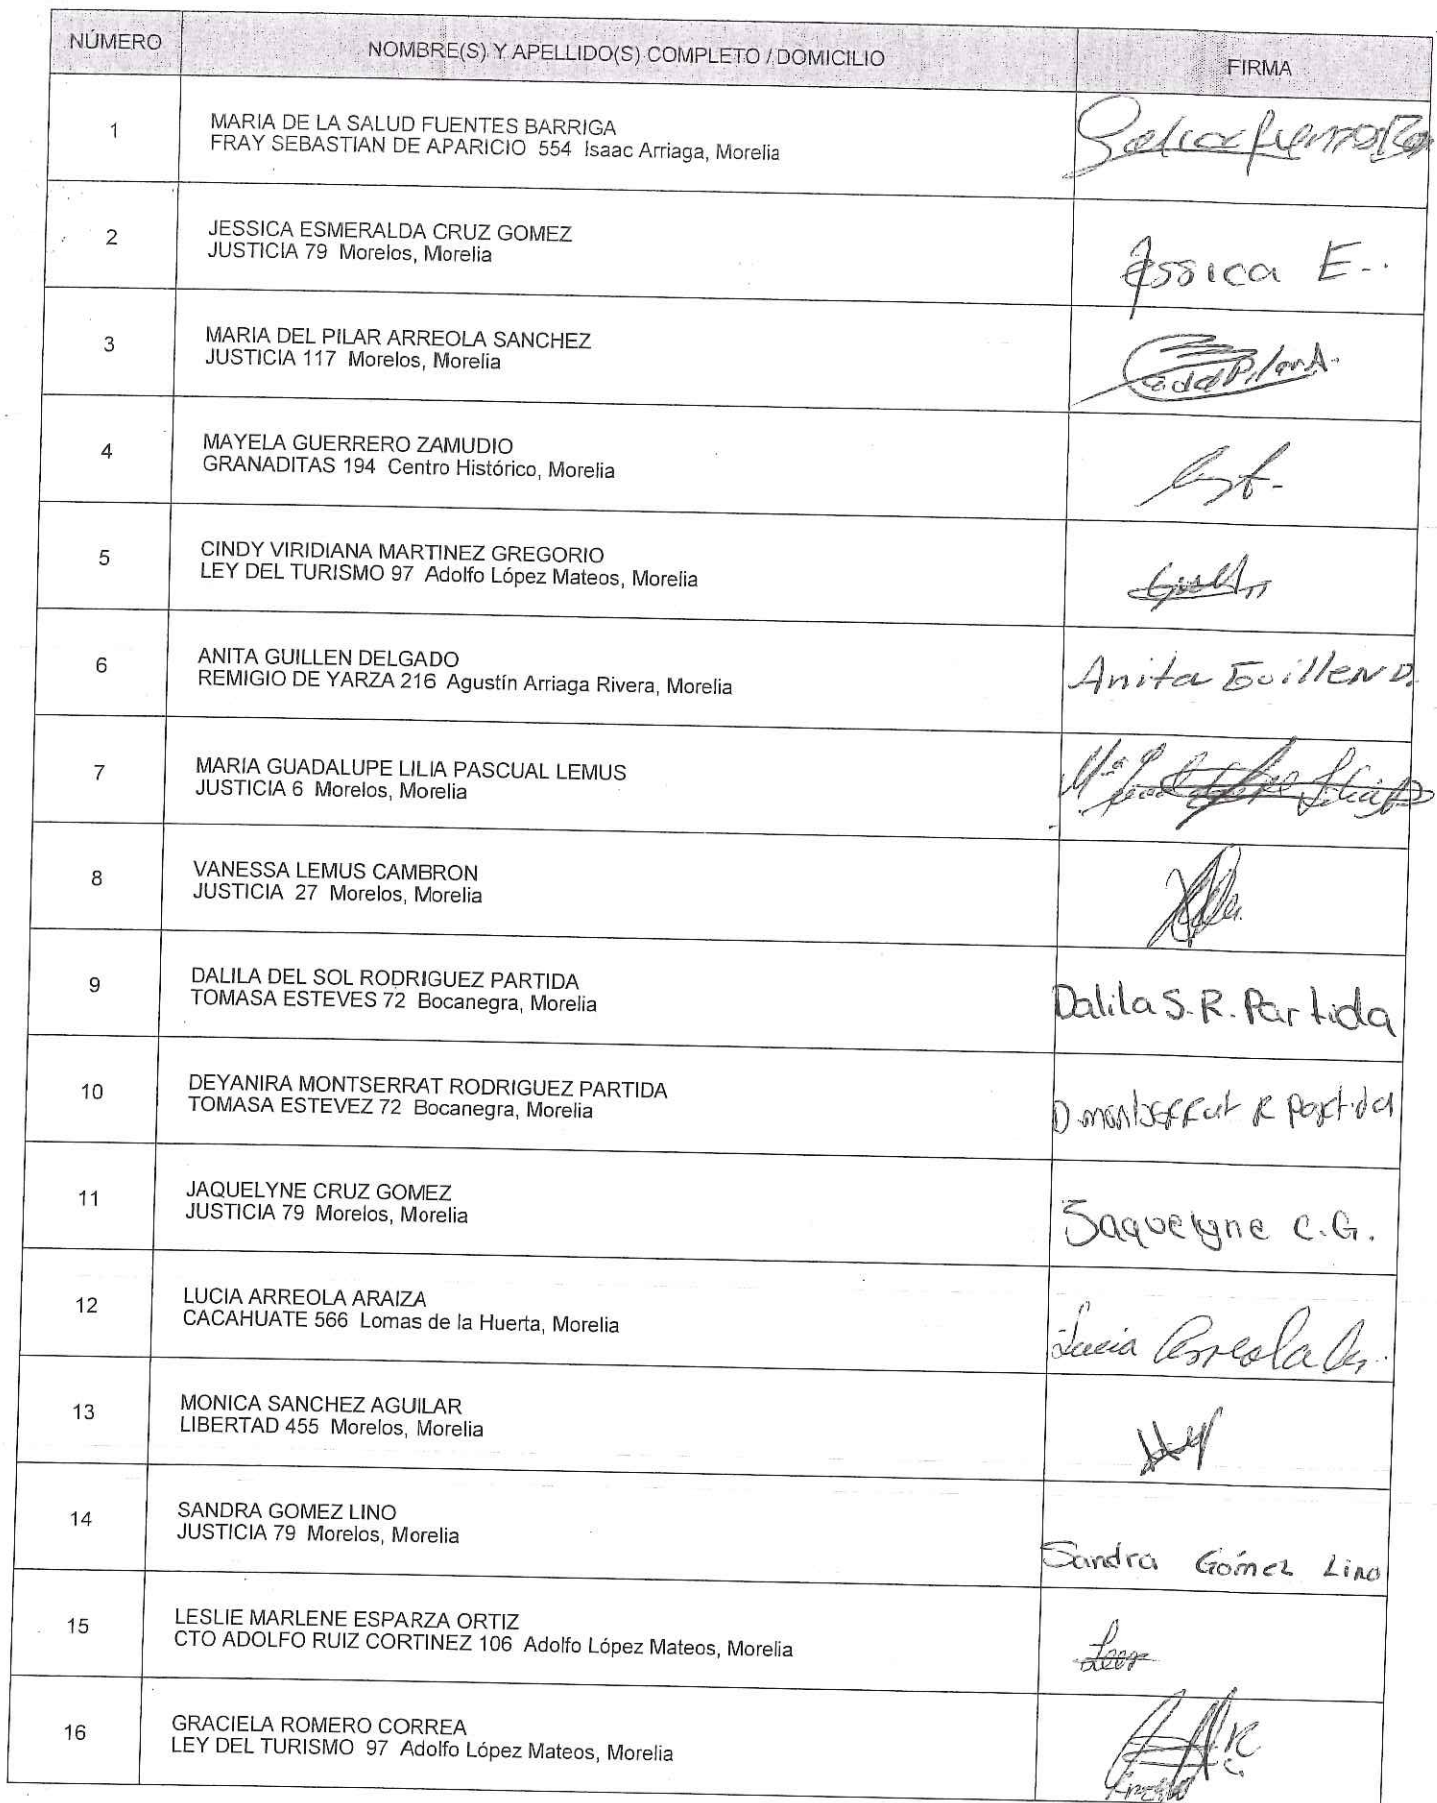 NÚMERO NOMBRE(S) Y APELLIDO(S) COMPLETO / DOMICILIO FIRMA
1 MARIA DE LA SALUD FUENTES BARRIGA
FRAY SEBASTIAN DE APARICIO 554 Isaac Arriaga, Morelia
2 JESSICA ESMERALDA CRUZ GOMEZ
JUSTICIA 79 Morelos, Morelia
Jessica E..
3 MARIA DEL PILAR ARREOLA SANCHEZ
JUSTICIA 117 Morelos, Morelia
4 MAYELA GUERRERO ZAMUDIO
GRANADITAS 194 Centro Histórico, Morelia
5 CINDY VIRIDIANA MARTINEZ GREGORIO
LEY DEL TURISMO 97 Adolfo López Mateos, Morelia
6 ANITA GUILLEN DELGADO
REMIGIO DE YARZA 216 Agustín Arriaga Rivera, Morelia
Anita Guillen D.
7 MARIA GUADALUPE LILIA PASCUAL LEMUS
JUSTICIA 6 Morelos, Morelia
8 VANESSA LEMUS CAMBRON
JUSTICIA 27 Morelos, Morelia
9 DALILA DEL SOL RODRIGUEZ PARTIDA
TOMASA ESTEVES 72 Bocanegra, Morelia
Dalila S. R. Partida
10 DEYANIRA MONTSERRAT RODRIGUEZ PARTIDA
TOMASA ESTEVEZ 72 Bocanegra, Morelia
D montserrat R partida
11 JAQUELYNE CRUZ GOMEZ
JUSTICIA 79 Morelos, Morelia
Jaquelyne C.G.
12 LUCIA ARREOLA ARAIZA
CACAHUATE 566 Lomas de la Huerta, Morelia
Lucia Arreola Ar.
13 MONICA SANCHEZ AGUILAR
LIBERTAD 455 Morelos, Morelia
14 SANDRA GOMEZ LINO
JUSTICIA 79 Morelos, Morelia
Sandra Gómez Lino
15 LESLIE MARLENE ESPARZA ORTIZ
CTO ADOLFO RUIZ CORTINEZ 106 Adolfo López Mateos, Morelia
16 GRACIELA ROMERO CORREA
LEY DEL TURISMO 97 Adolfo López Mateos, Morelia